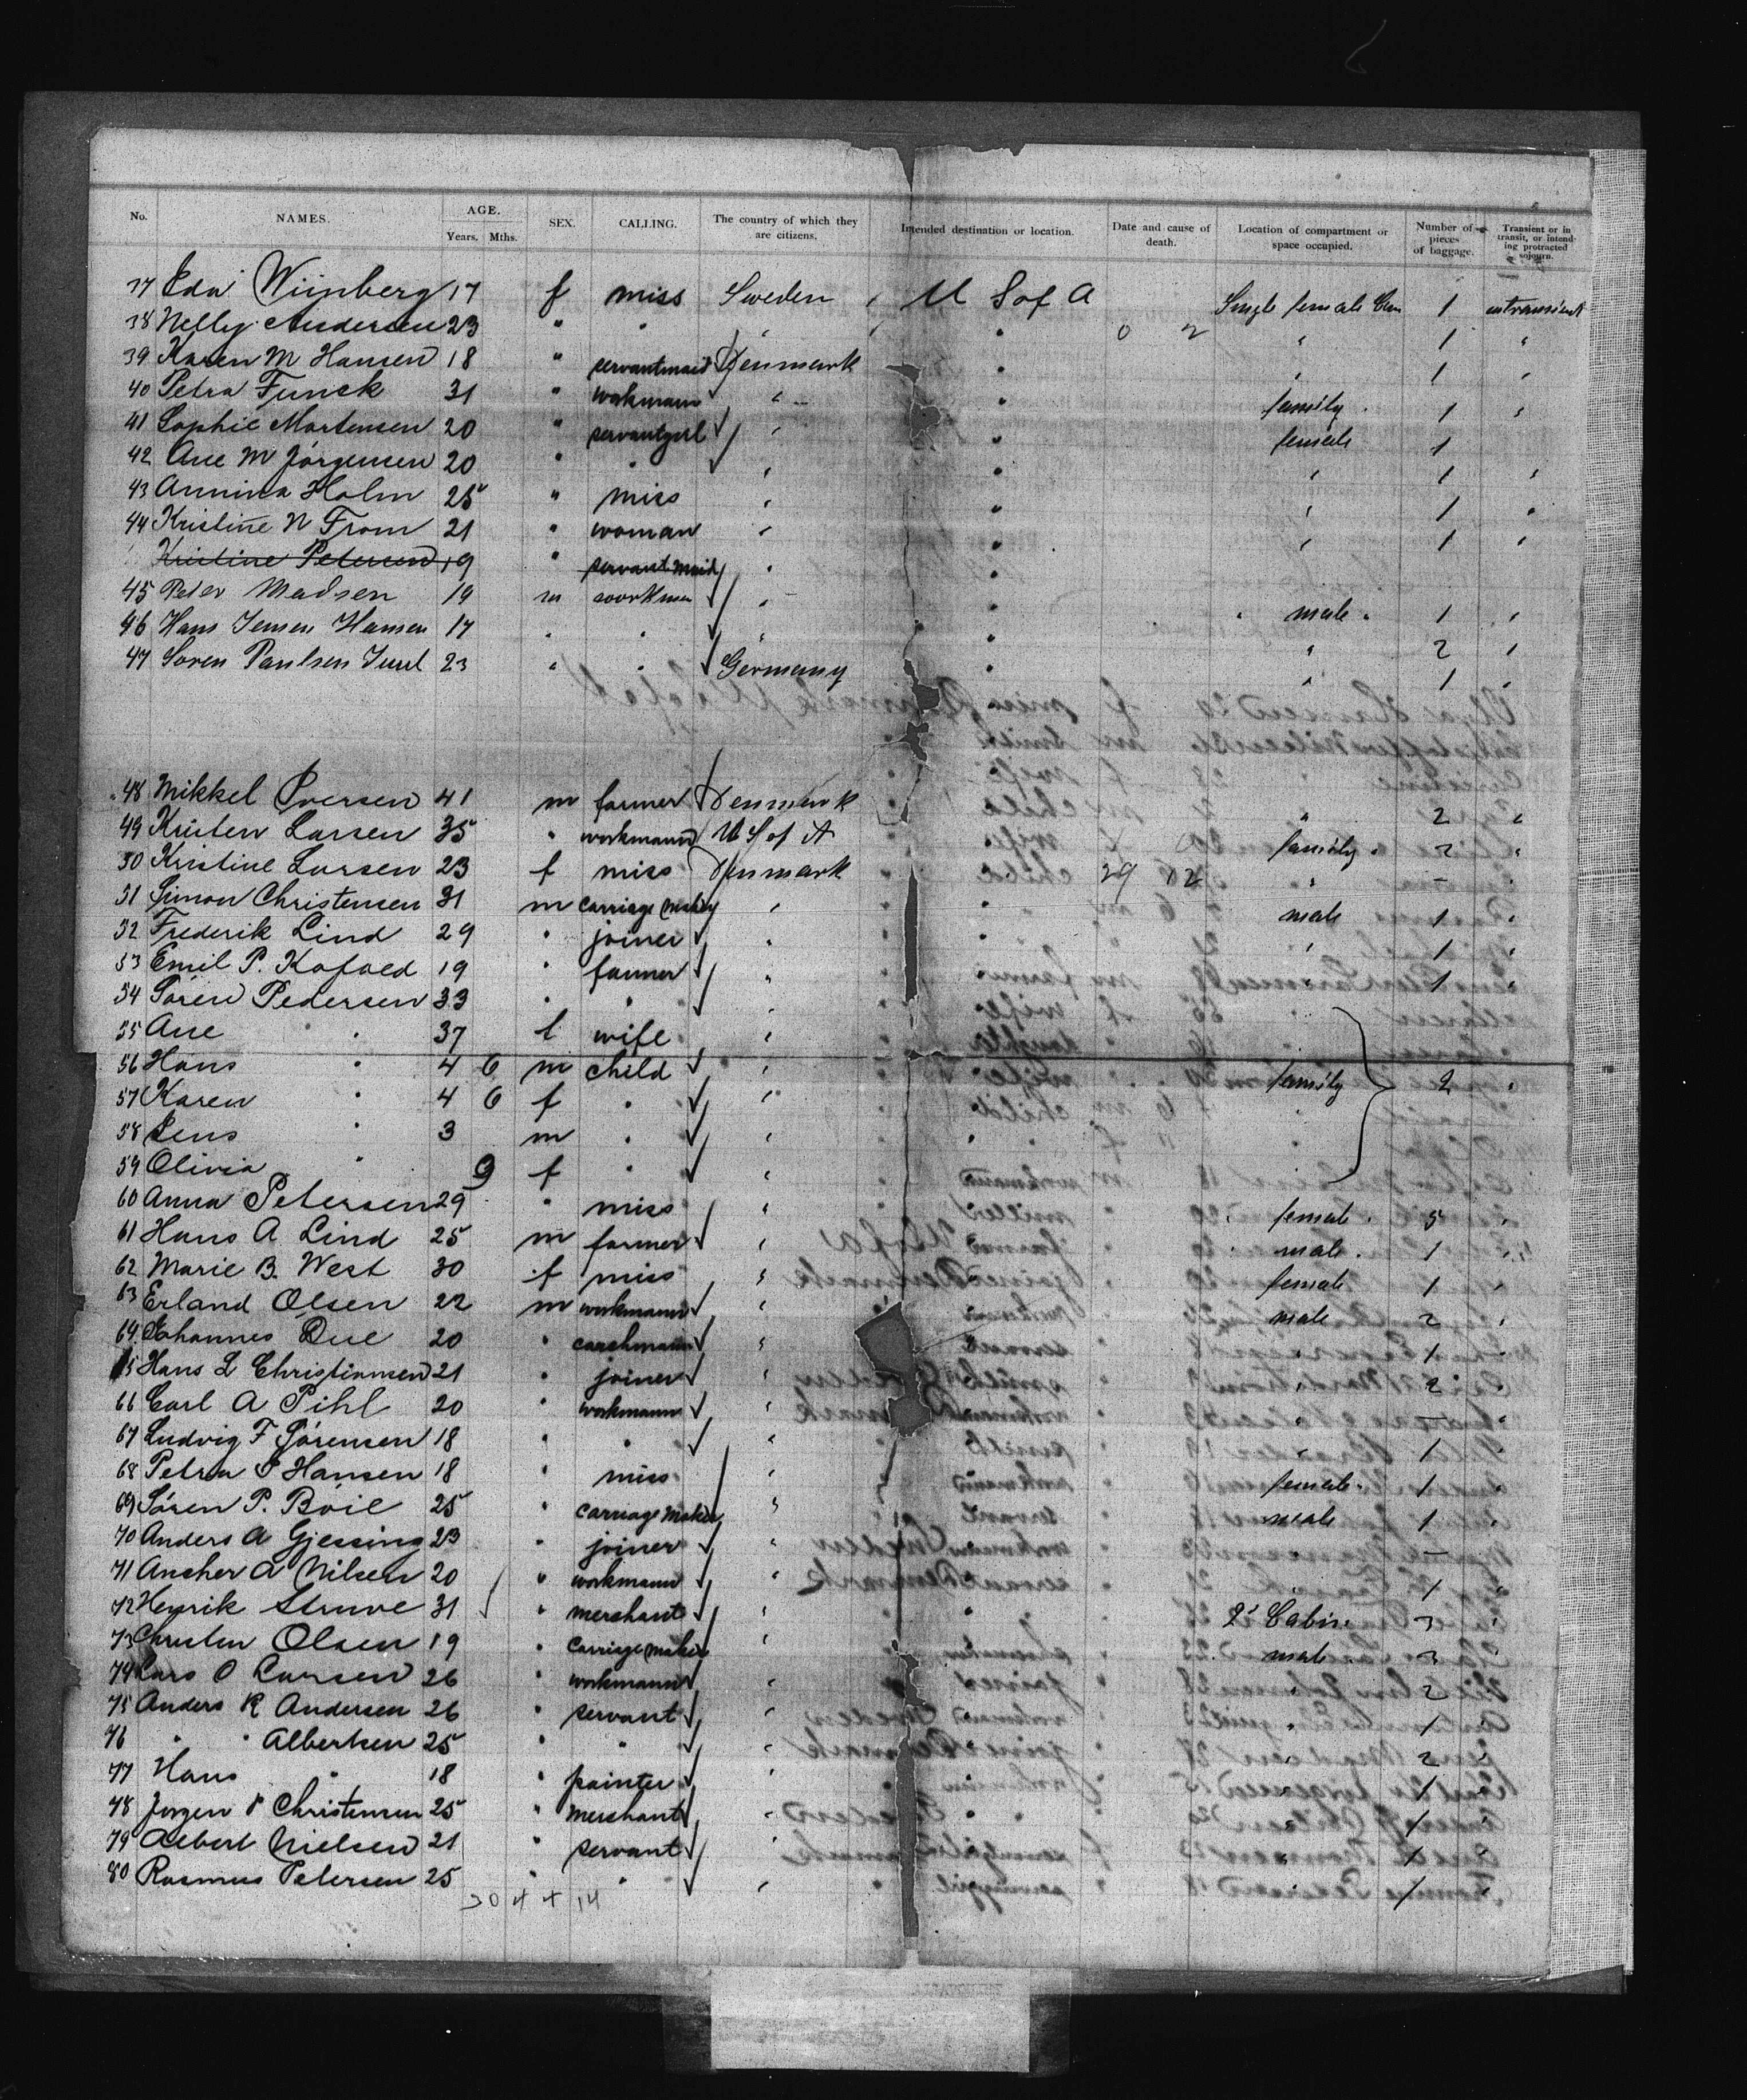 No. NAMES. AGE. Years. Mths. SEX. CALLING. The country of which they are citizens. Intended destination or location. Date and cause of death. Location of compartment or space occupied. Number of pieces of baggage. Transient or in transit, or intending protracted sojourn.
37 Eda Wiinberg 17 f miss Sweden U S of A Single female 1
38 Nelly Andersen 23 " " " " 0 2 " 1 "
39 Karen M Hansen 18 " servantmaid Denmark " " 1 "
40 Petra Funck 31 " workmann " " family 1 "
41 Sophie Mortensen 20 " servantgirl " " female 1
42 Ane M Jörgensen 20 " " " " " 1 "
43 Annina Holm 25 " miss " " " 1 "
44 Kristine N From 21 " woman " " " 1 "
Kristine Petersen 19 " servant maid " "
45 Peter Madsen 19 m workman " " " male " 1 "
46 Hans Jensen Hansen 17 " " " " " 2 "
47 Soren Paulsen Juul 23 " " Germany " " 1 "
48 Mikkel Iversen 41 m farmer Denmark " " 2 "
49 Kristen Larsen 35 " workmann U S of A " family 2 "
50 Kristine Larsen 23 f miss Denmark " 29 12 " – "
51 Simon Christensen 31 m carriage maker " " male 1 "
52 Frederik Lind 29 " joiner " " " 1 "
53 Emil P. Kofoed 19 " farmer " " " 1 "
54 Sören Pedersen 33 " " "
55 Ane " 37 f wife "
56 Hans " 4 6 m child " family 2 "
57 Karen " 4 6 f " "
58 Jens " 3 m " " "
59 Olivia " 9 f " "
60 Anna Petersen 29 " miss " " female " 5 "
61 Hans A Lind 25 m farmer " " male " 1 "
62 Marie B. West 30 f miss " " female 1 "
63 Erland Olsen 22 m workmann " " male 2 "
64 Johannes Due 20 " coachmann " " 1 "
65 Hans L Christiansen 21 " joiner " " 2 "
66 Carl A Pihl 20 " workmann " " – "
67 Ludvig F Sörensen 18 " " " " 1 "
68 Petra S Hansen 18 " miss " female " 1 "
69 Sören P. Böil 25 " carriage maker " male 1 "
70 Anders A Gjessing 23 " joiner " – "
71 Ancher A Nilsen 20 " workmann " " 1 "
72 Henrik Struve 31 " merchant " " 2' Cabin 3 "
73 Christen Olsen 19 " carriage maker " male 3 "
74 Lars O Larsen 26 " workmann " " 2 "
75 Anders K Andersen 26 " servant " " 1 "
76 " " Albertsen 25 " " " " 2 "
77 Hans " 18 " painter " " 1 "
78 Jorgen P Christensen 25 " merchant " " " 1 "
79 Albert Nielsen 21 " servant " " 1 "
80 Rasmus Petersen 25 " " " " 1 "
30 4 + 14